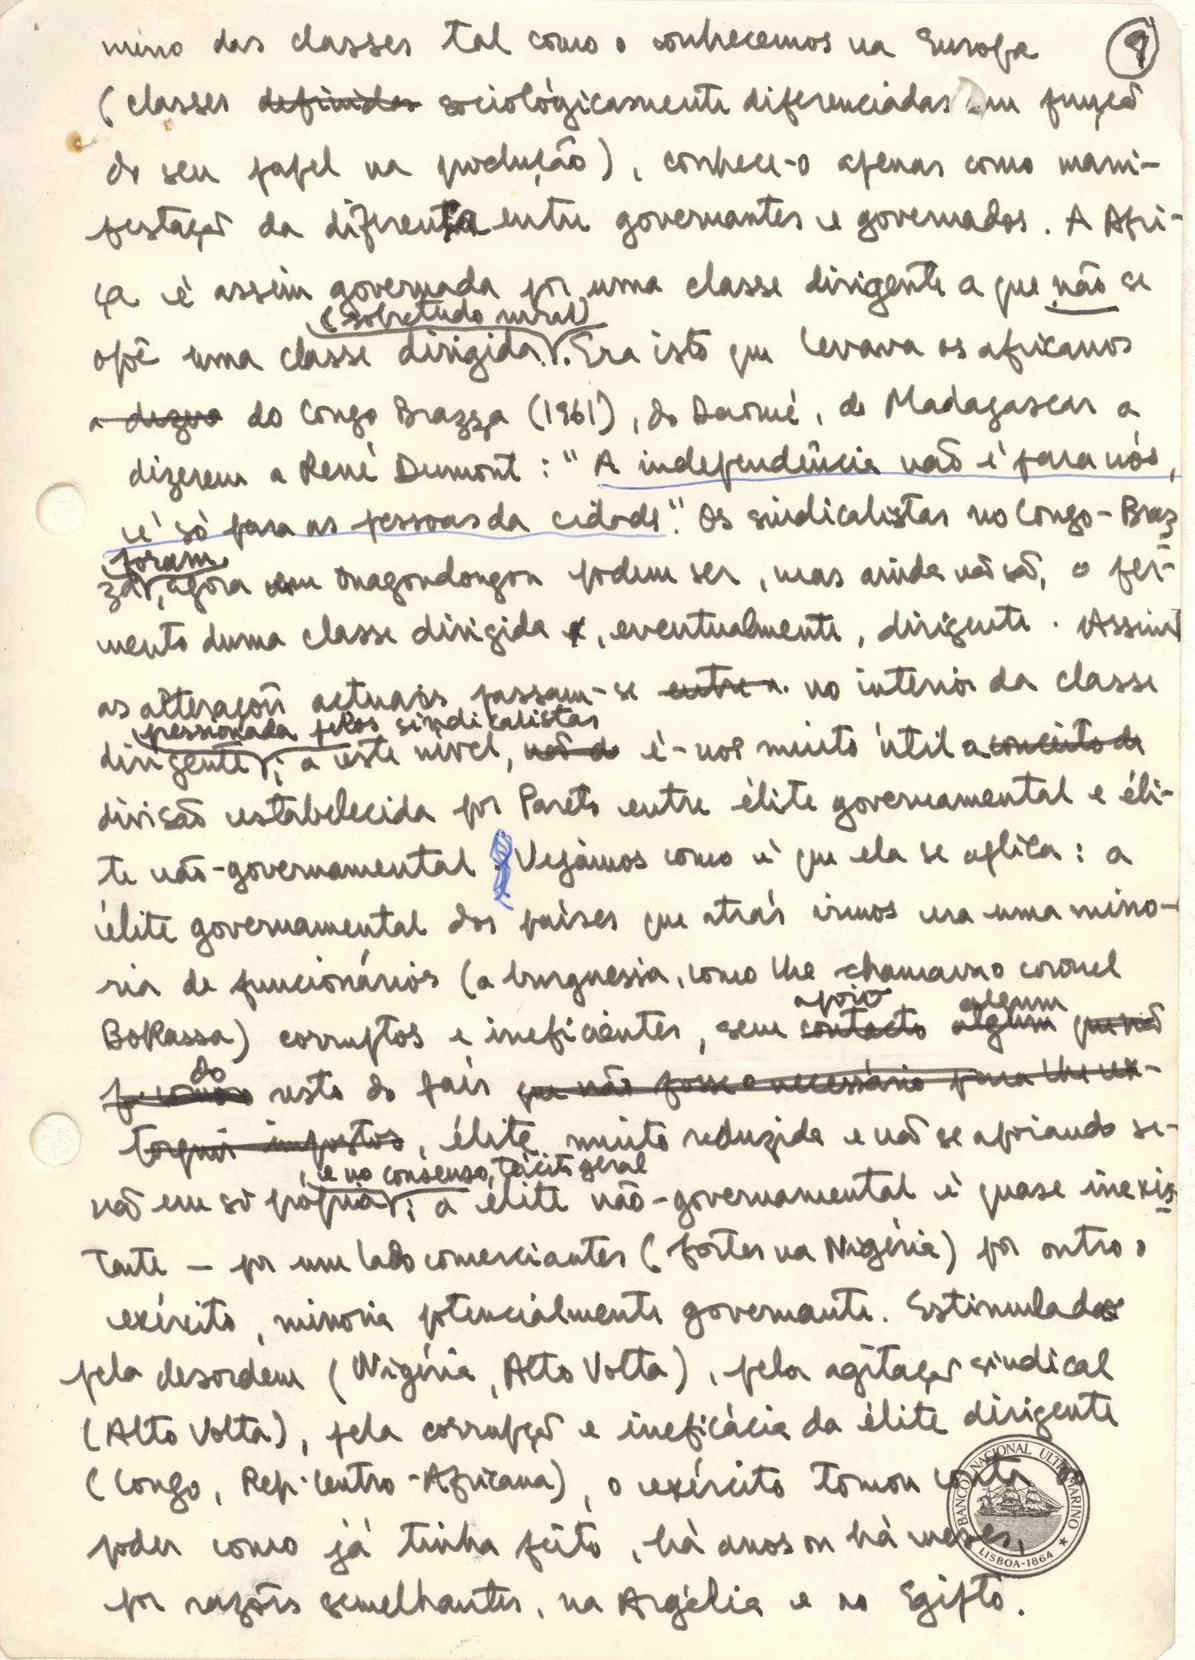 mino das classes tal como o conhecemos na Europa
8
(classes definidas sociológicamente diferenciadas em função
do seu papel na produção), conhece-o apenas como mani-
festação da diferença entre governantes e governados. A Áfri-
ça é assim governada por uma classe dirigente a que não se
(sobretudo rural)
opõe uma classe dirigida. Era isto que levava os africanos
a dizer do Congo Brazza (1961), do Daomé, de Madagascar a
dizerem a René Dumont: "A independência não é para nós,
é só para as pessoas da cidade." Os sindicalistas no Congo-Braz
foram
za, agora em Ouagondongou podem ser, mas ainda não são, o fer-
mento duma classe dirigida e, eventualmente, dirigente. Assim
as alterações actuais passam-se entre a no interior da classe
pressionada pelos sindicalistas
dirigente; a este nível, não d é-nos muito útil a conceito de
divisão estabelecida por Pareto entre élite governamental e éli-
te não-governamental. Vejamos como é que ela se aplica: a
élite governamental dos países que atrás vimos era uma mino-
ria de funcionários (a burguesia, como lhe chamava o coronel
apoio algum
Bokassa) corruptos e ineficientes, sem contacto algum que não
do
resto do país que não fosse o necessário para lhe ex-
torquir impostos, élite muito reduzida e não se apoiando se-
e no consenso tácito geral
não em si própria; a élite não-governamental é quase inexis
tente — por um lado comerciantes (fortes na Nigéria) por outro o
exército, minoria potencialmente governante. Estimulado
pela desordem (Nigéria, Alto Volta), pela agitação sindical
(Alto Volta), pela corrupção e ineficácia da élite dirigente
(Congo, Rep. Centro-Africana), o exército tomou conta do
poder como já tinha feito, há anos ou há meses,
por razões semelhantes, na Argélia e no Egipto.
BANCO NACIONAL ULTRAMARINO
LISBOA-1864